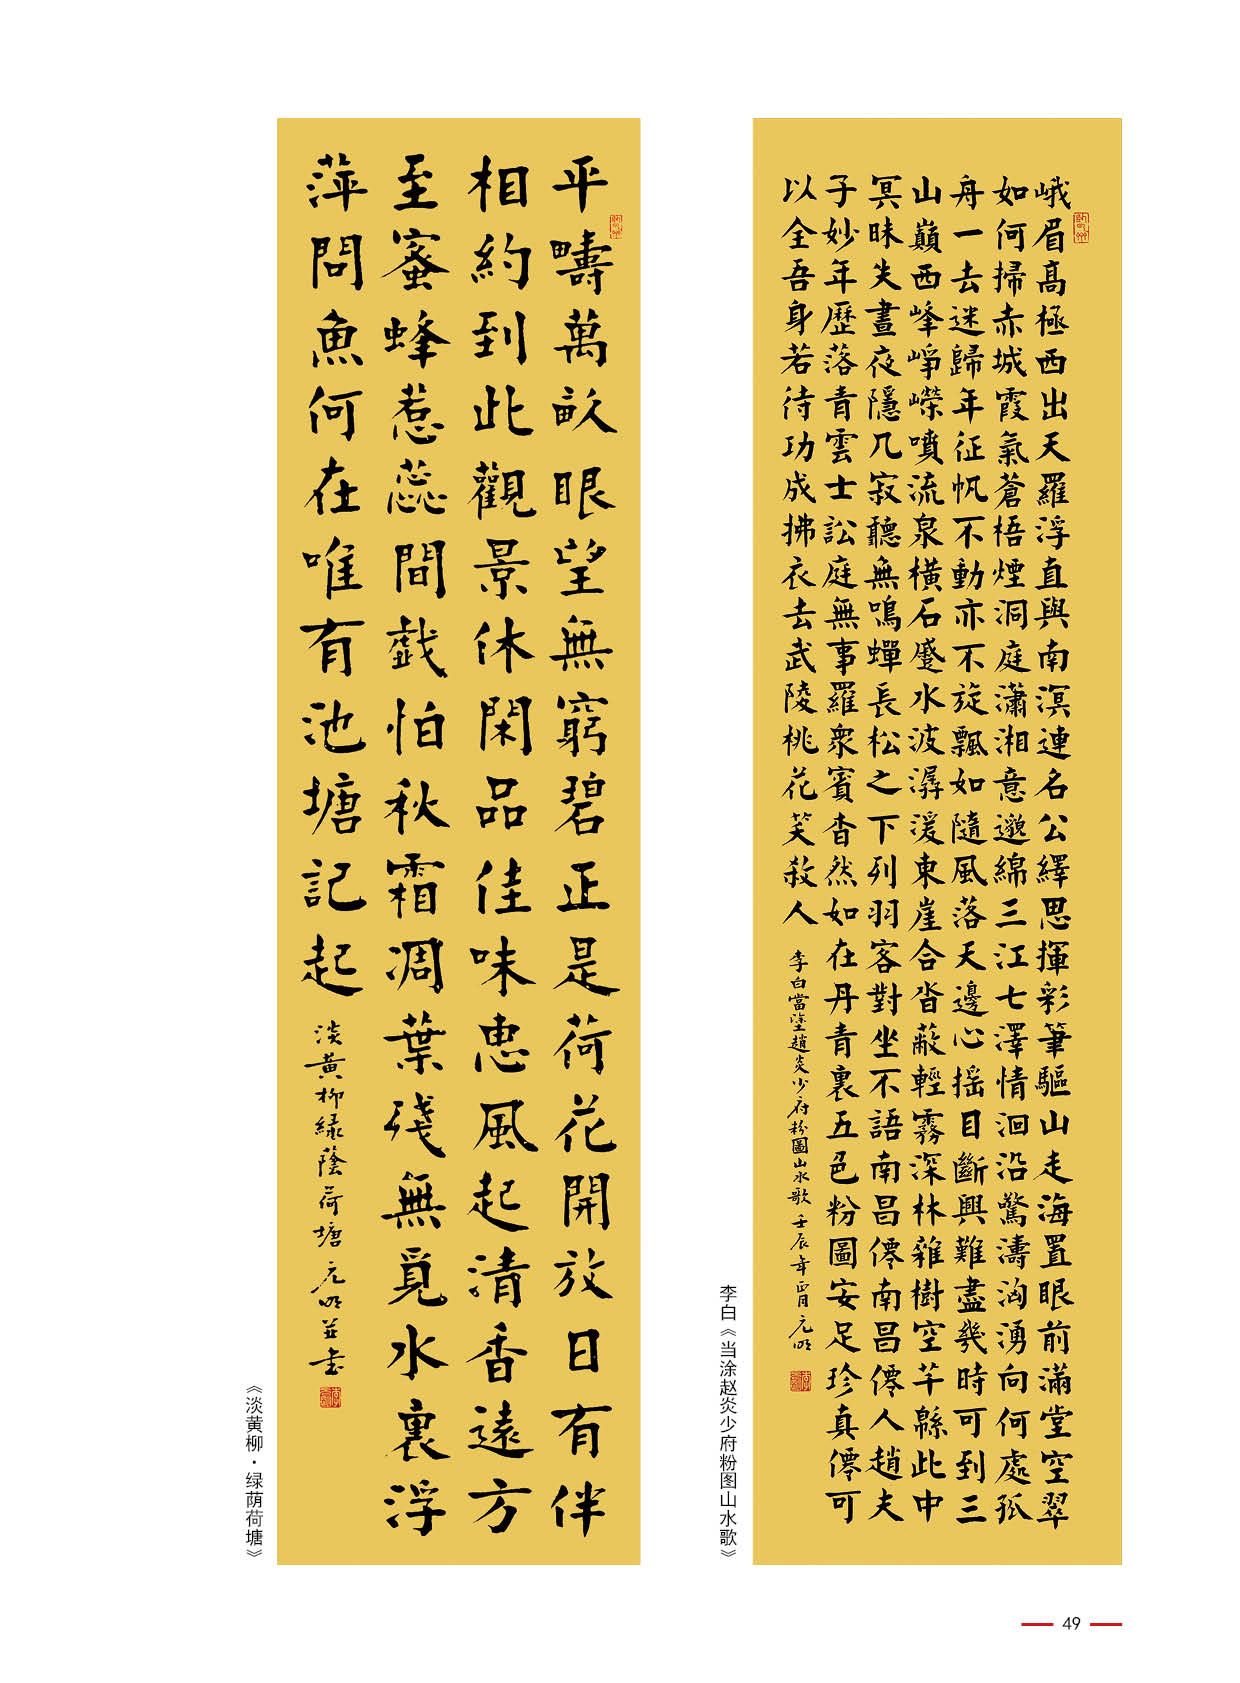 峨眉高極西出天羅浮直與南溟連名公繹思揮彩筆驅山走海置眼前滿堂空翠
如何掃赤城霞氣蒼梧煙洞庭瀟湘意邈綿三江七澤情洄沿驚濤洶湧向何處孤
舟一去迷歸年征帆不動亦不旋飄如隨風落天邊心搖目斷興難盡幾時可到三
山巔西峰崢嶸噴流泉橫石蹙水波潺湲東崖合沓蔽輕霧深林雜樹空芊緜此中
冥昧失晝夜隱几寂聽無鳴蟬長松之下列羽客對坐不語南昌僊南昌僊人趙夫
子妙年歷落青雲士訟庭無事羅衆賓杳然如在丹青裏五色粉圖安足珍真僊可
以全吾身若待功成拂衣去武陵桃花笑殺人
李白當塗趙炎少府粉圖山水歌 壬辰年四月 元明
李白《当涂赵炎少府粉图山水歌》
平疇萬畝眼望無窮碧正是荷花開放日有伴
相約到此觀景休閑品佳味惠風起清香遠方
至蜜蜂惹蕊間戲怕秋霜凋葉殘無覓水裏浮
萍問魚何在唯有池塘記起
淡黃柳綠蔭荷塘 元明並書
《淡黄柳·绿荫荷塘》
49